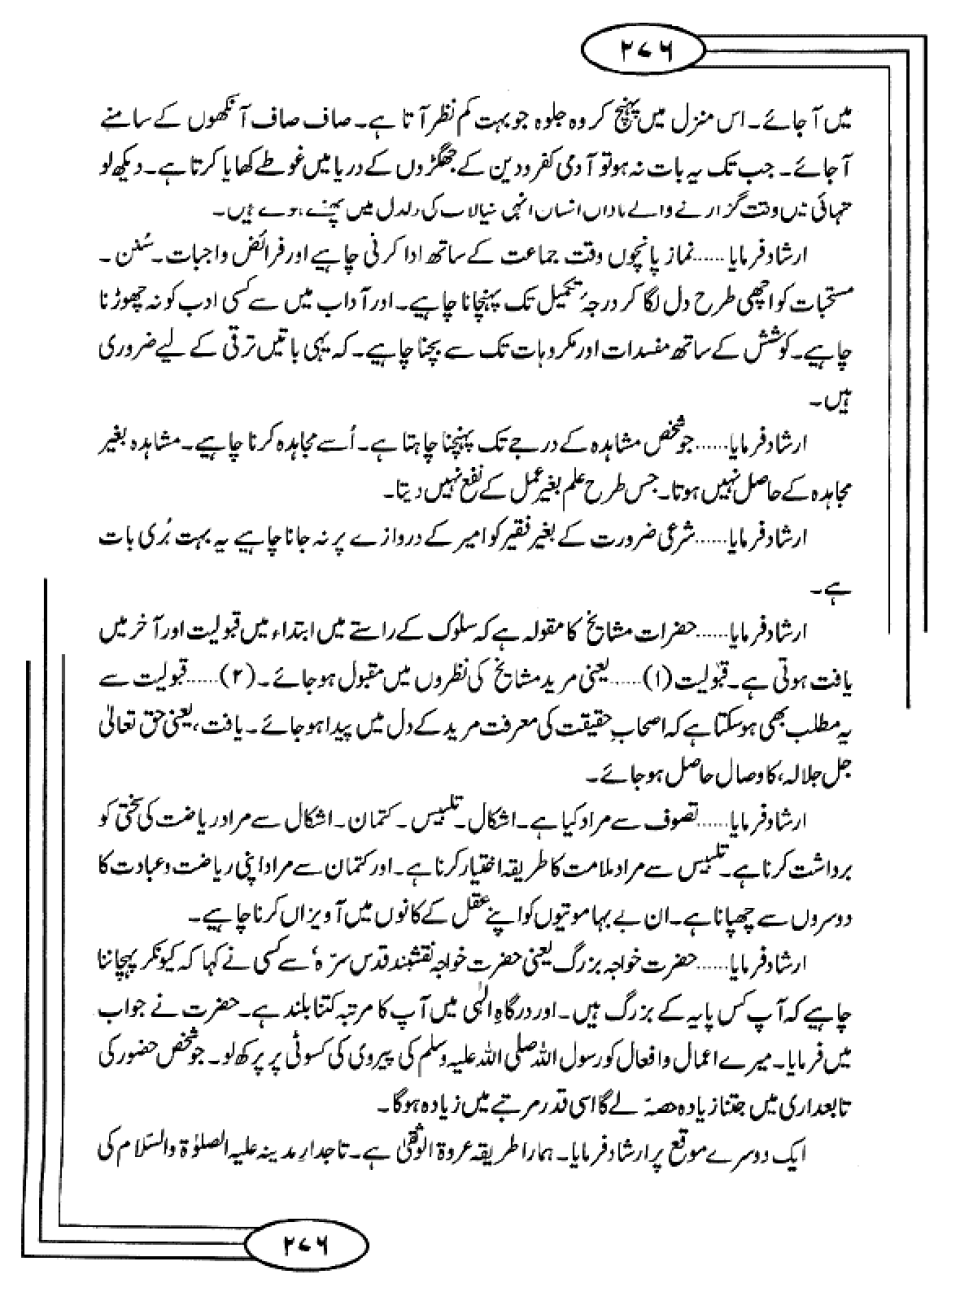 ۲۷۶
میں آ جائے۔ اس منزل میں پہنچ کر وہ جلوہ جو بہت کم نظر آتا ہے۔ صاف صاف آنکھوں کے سامنے
آ جائے۔ جب تک یہ بات نہ ہو تو آدمی کفر و دین کے جھگڑوں کے دریا میں غوطے کھایا کرتا ہے۔ دیکھ لو
تنہائی میں وقت گزارنے والے ناداں انسان انہی خیالات کی دلدل میں پھنسے ہوئے ہیں۔
ارشاد فرمایا...... نماز پانچوں وقت جماعت کے ساتھ ادا کرنی چاہیے اور فرائض واجبات۔ سُنن۔
مستحبات کو اچھی طرح دل لگا کر درجۂ تکمیل تک پہنچانا چاہیے۔ اور آداب میں سے کسی ادب کو نہ چھوڑنا
چاہیے۔ کوشش کے ساتھ مفسدات اور مکروہات تک سے بچنا چاہیے۔ کہ یہی باتیں ترقی کے لیے ضروری
ہیں۔
ارشاد فرمایا...... جو شخص مشاہدہ کے درجے تک پہنچنا چاہتا ہے۔ اُسے مجاہدہ کرنا چاہیے۔ مشاہدہ بغیر
مجاہدہ کے حاصل نہیں ہوتا۔ جس طرح علم بغیر عمل کے نفع نہیں دیتا۔
ارشاد فرمایا...... شرعی ضرورت کے بغیر فقیر کو امیر کے دروازے پر نہ جانا چاہیے یہ بہت بُری بات
ہے۔
ارشاد فرمایا...... حضرات مشایخ کا مقولہ ہے کہ سلوک کے راستے میں ابتداء میں قبولیت اور آخر میں
یافت ہوتی ہے۔ قبولیت (۱)...... یعنی مرید مشایخ کی نظروں میں مقبول ہو جائے۔ (۲)...... قبولیت سے
یہ مطلب بھی ہو سکتا ہے کہ اصحابِ حقیقت کی معرفت مرید کے دل میں پیدا ہو جائے۔ یافت، یعنی حق تعالیٰ
جل جلالہ، کا وصال حاصل ہو جائے۔
ارشاد فرمایا...... تصوف سے مراد کیا ہے۔ اشکال۔ تلبیس۔ کتمان۔ اشکال سے مراد ریاضت کی سختی کو
برداشت کرنا ہے۔ تلبیس سے مراد ملامت کا طریقہ اختیار کرنا ہے۔ اور کتمان سے مراد اپنی ریاضت و عبادت کا
دوسروں سے چھپانا ہے۔ ان بے بہا موتیوں کو اپنے عقل کے کانوں میں آویزاں کرنا چاہیے۔
ارشاد فرمایا...... حضرت خواجہ بزرگ یعنی حضرت خواجہ نقشبند قدس سرّہٗ سے کسی نے کہا کہ کیونکر پہچاننا
چاہیے کہ آپ کس پایہ کے بزرگ ہیں۔ اور درگاہِ الٰہی میں آپ کا مرتبہ کتنا بلند ہے۔ حضرت نے جواب
میں فرمایا۔ میرے اعمال و افعال کو رسول اللہ صلی اللہ علیہ وسلم کی پیروی کی کسوٹی پر پرکھ لو۔ جو شخص حضور کی
تابعداری میں جتنا زیادہ حصہّ لے گا اسی قدر مرتبے میں زیادہ ہوگا۔
ایک دوسرے موقع پر ارشاد فرمایا۔ ہمارا طریقہ عروۃ الوثقیٰ ہے۔ تاجدارِ مدینہ علیہ الصلوٰۃ والسّلام کی
۲۷۶